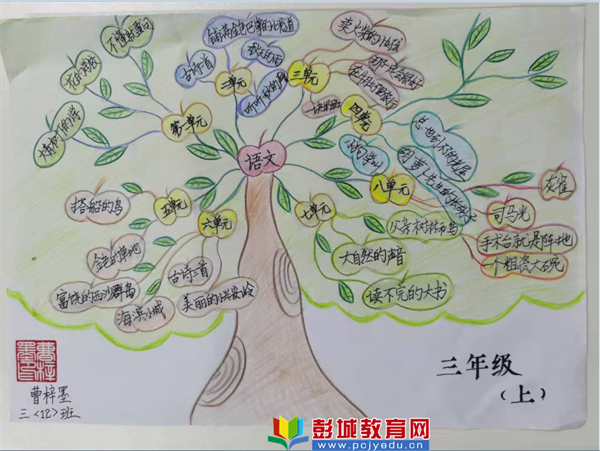 不懂就要问
花的学校
大青树下的小学
第一单元
铺满金色巴掌的水泥道
秋天的雨
古诗三首
听听秋的声音
二单元
卖火柴的小女孩
那一定会很好
在牛肚子里旅行
一块奶酪
三单元
四单元
总也倒不了的老屋
胡萝卜先生的长胡子
语文
搭船的鸟
金色的草地
五单元
富饶的西沙群岛
海滨小城
古诗三首
美丽的小兴安岭
六单元
七单元
大自然的声音
读不完的大书
父亲、树林和鸟
八单元
灰雀
司马光
手术台就是阵地
一个粗瓷大碗
三年级
(上)
曹梓墨
三<12>班
彭城教育网
www.pcjyedu.cn